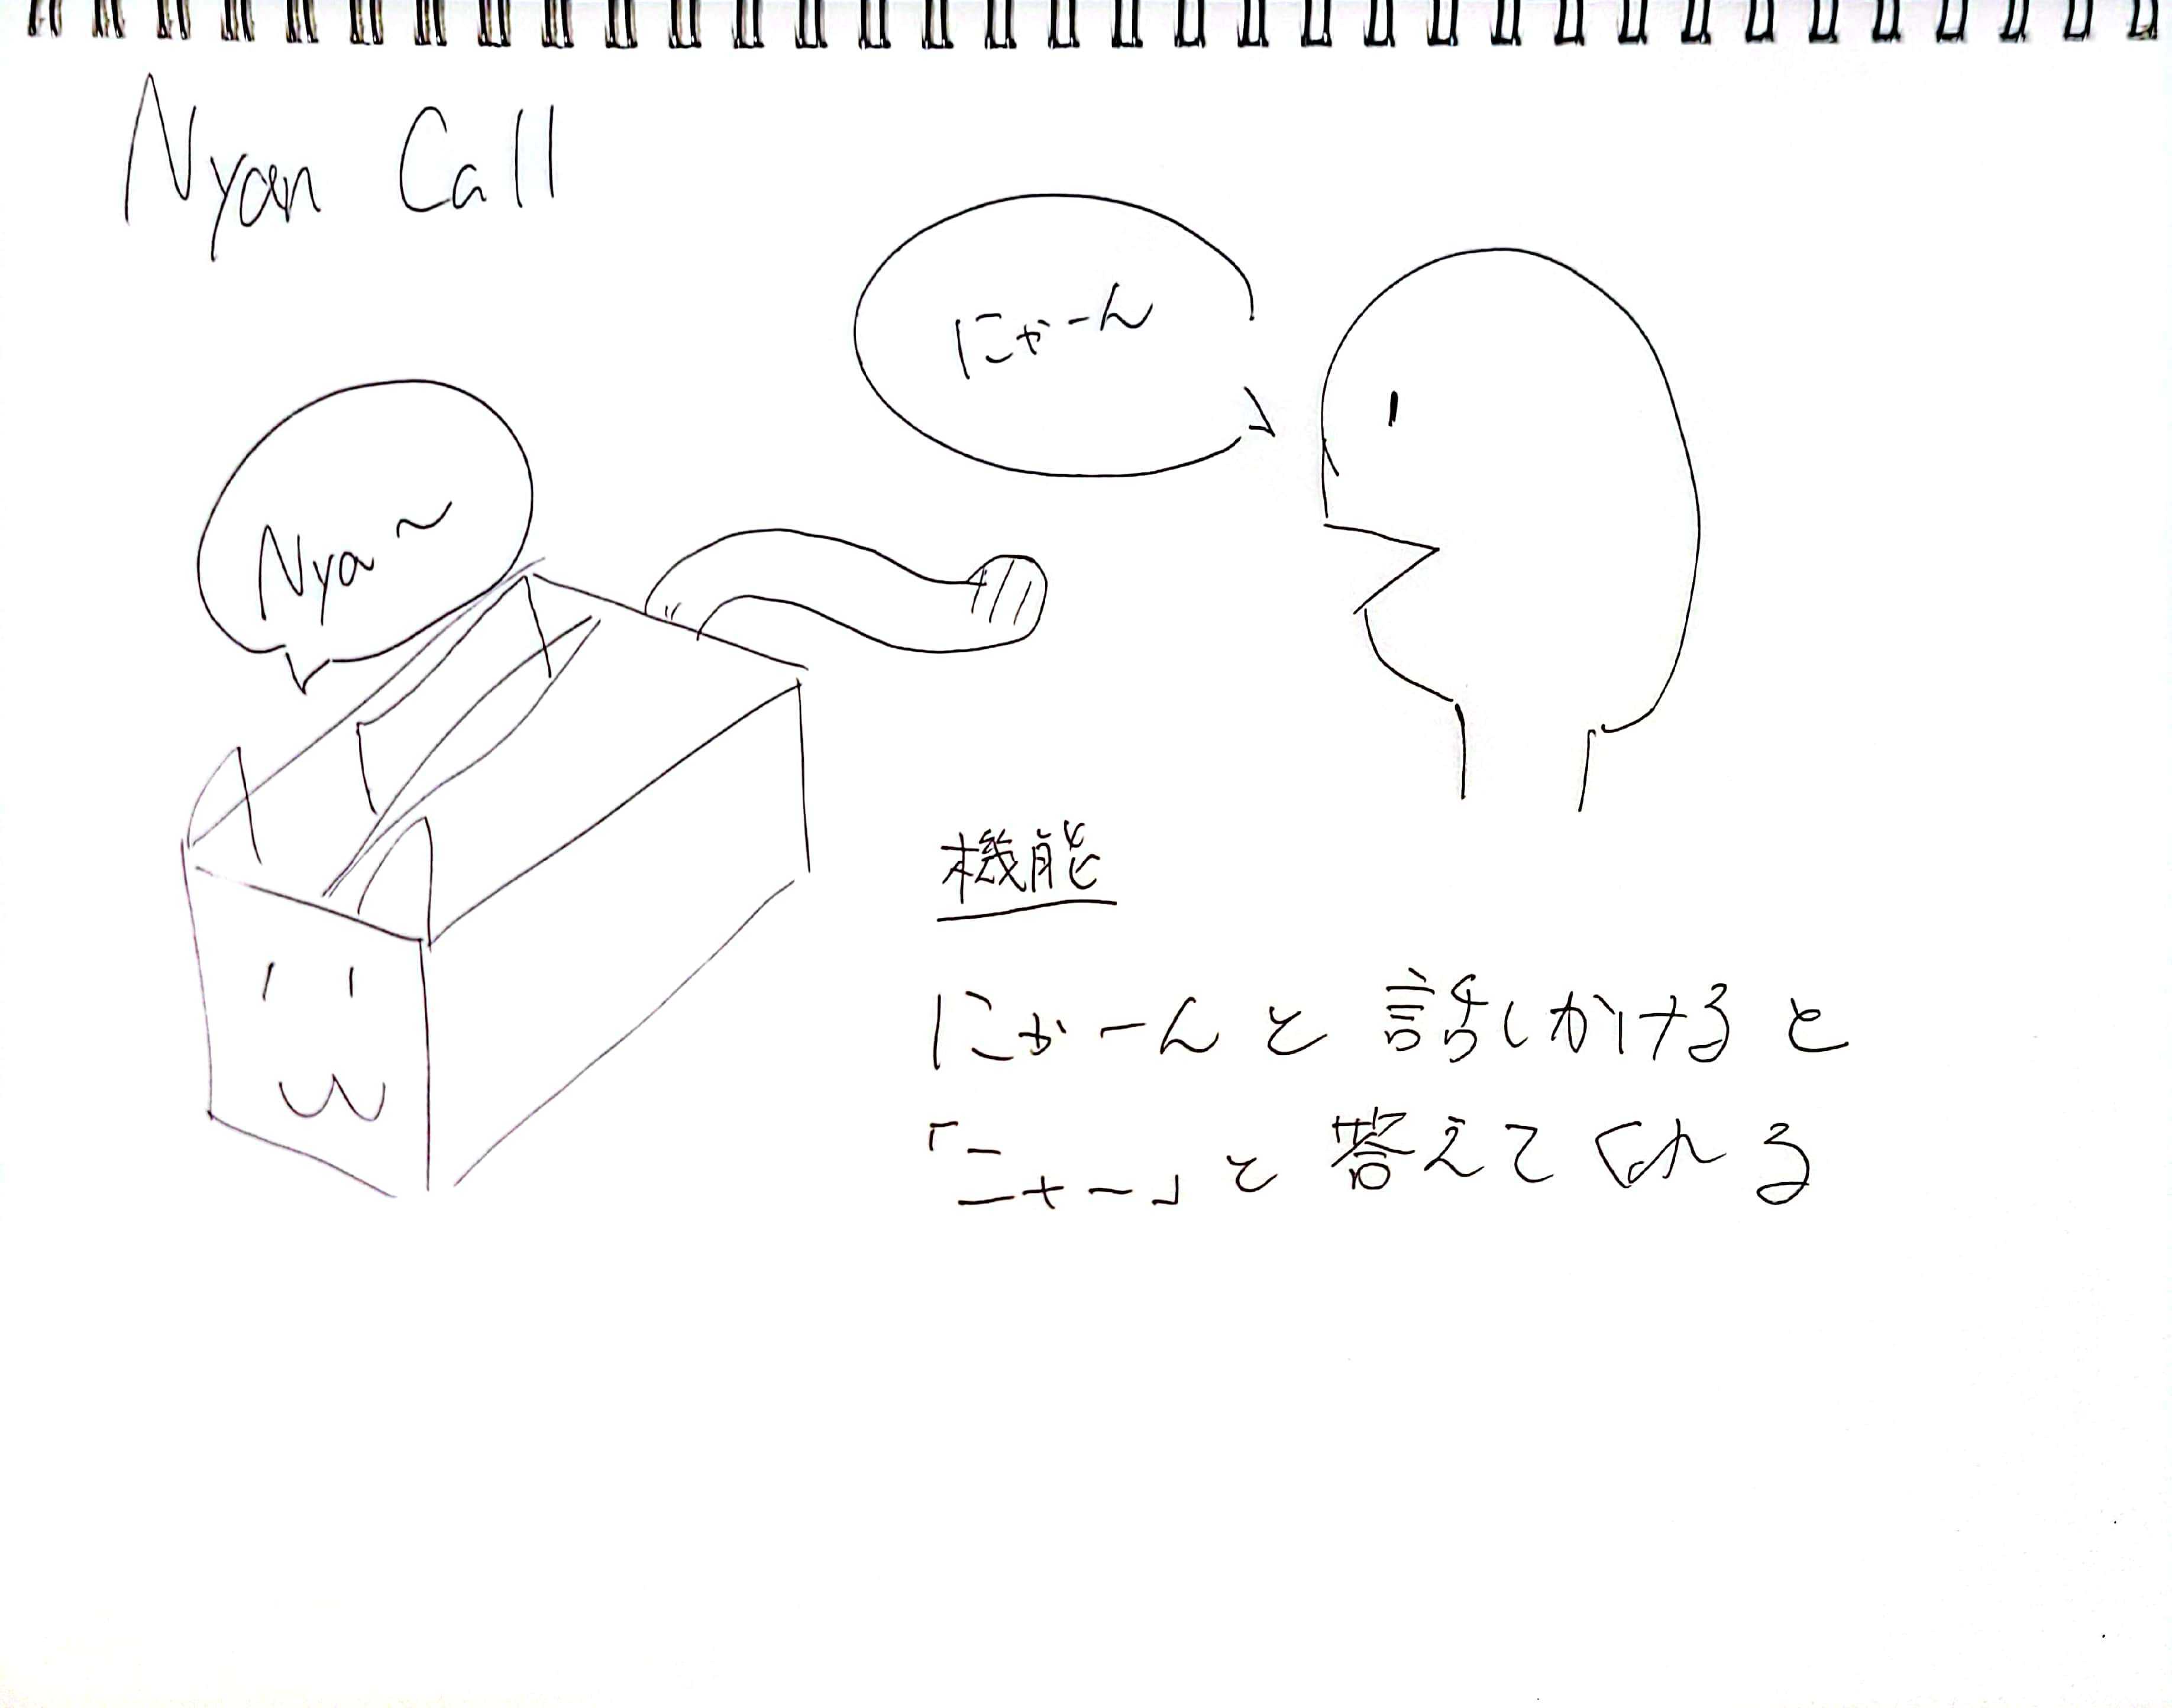 Nyan Call
にゃーん
Nya～
機能
にゃーんと話しかけると
「ニャー」と答えてくれる